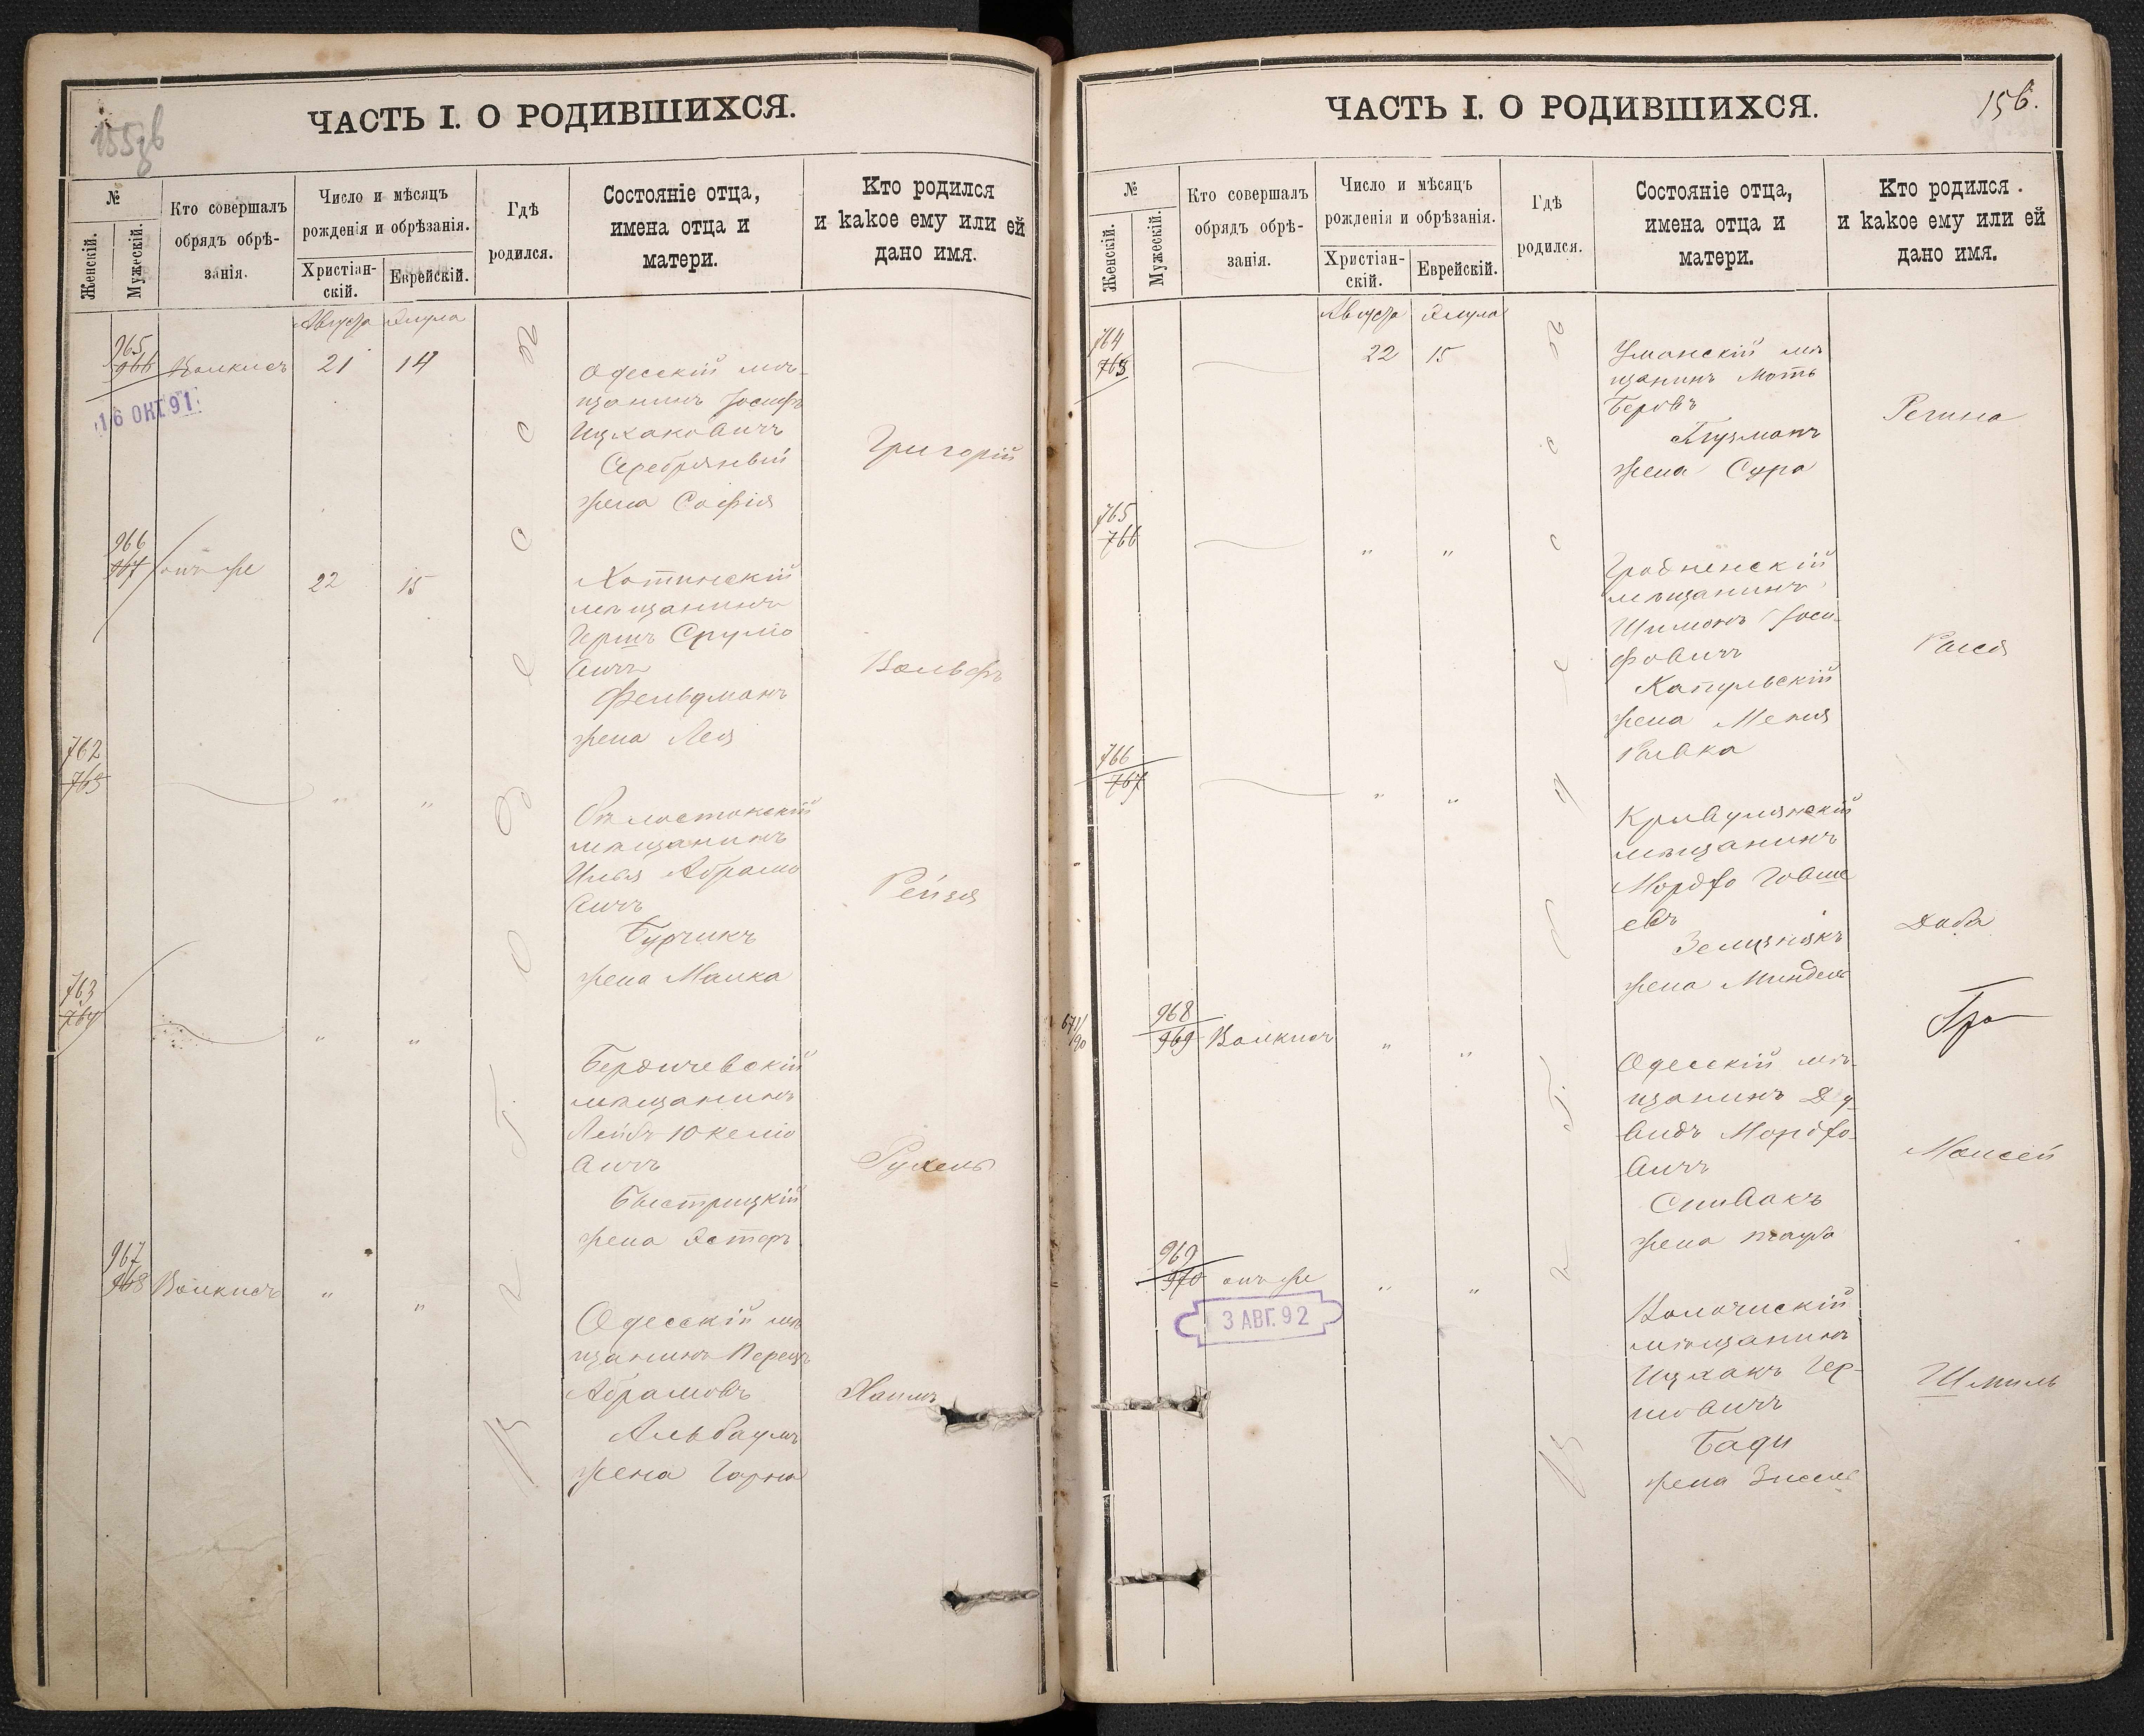 155об
ЧАСТЬ I. О РОДИВШИХСЯ.
№
Женскій.
Мужескій.
Кто совершалъ
обрядъ обрѣ-
занія.
Число и мѣсяцъ
рожденія и обрѣзанія.
Христіан-
скій.
Еврейскій.
Гдѣ
родился.
Состояніе отца,
имена отца и
матери.
Кто родился
и какое ему или ей
дано имя.
Августа Элула
965
966 Волкисъ 21 14
16 ОКТ 91
Одесскій мѣ-
щанинъ Іосифъ
Ицхаковичъ
Серебряный
жена Софія
Григорій
966
967 онъ же 22 15
Хотинскій
мѣщанинъ
Гершъ Срулио
вичъ
Фельдманъ
жена Лея
Вольфъ
762
763 " "
Бѣлостокскій
мѣщанинъ
Илья Абрамо
вичъ
Бурчикъ
жена Малка
Рейзя
763
764 " "
Бердичевскій
мѣщанинъ
Лейбъ Юкелио
вичъ
Быстрицкій
жена Эстеръ
Рухель
967
968 Волкисъ " "
Одесскій мѣ
щанинъ Перецъ
Абрамовъ
Альбаумъ
жена Горна
Хаимъ
156.
ЧАСТЬ I. О РОДИВШИХСЯ.
№
Женскій.
Мужескій.
Кто совершалъ
обрядъ обрѣ-
занія.
Число и мѣсяцъ
рожденія и обрѣзанія.
Христіан-
скій.
Еврейскій.
Гдѣ
родился.
Состояніе отца,
имена отца и
матери.
Кто родился
и какое ему или ей
дано имя.
Августа Элула
764
765 22 15
Уманскій мѣ
щанинъ Моть
Беровъ
Глузманъ
жена Сура
Регина
765
766 " "
Гродненскій
мѣщанинъ
Шимонъ Іоси-
фовичъ
Капульскій
жена Менія
Ривка
Рися
766
767 " "
Кривулянскій
мѣщанинъ
Мордко Говше
евъ
Зелизнякъ
жена Миндель
Доба
671/90
968
969 Волкисъ " "
Одесскій мѣ-
щанинъ Да-
видъ Мордко-
вичъ
Спивакъ
жена Тауба
Моисей
969
970 онъ же " "
3 АВГ. 92
Волочискій
мѣщанинъ
Ицхакъ Гер-
шовичъ
Бади
жена Зисель
Шмиль